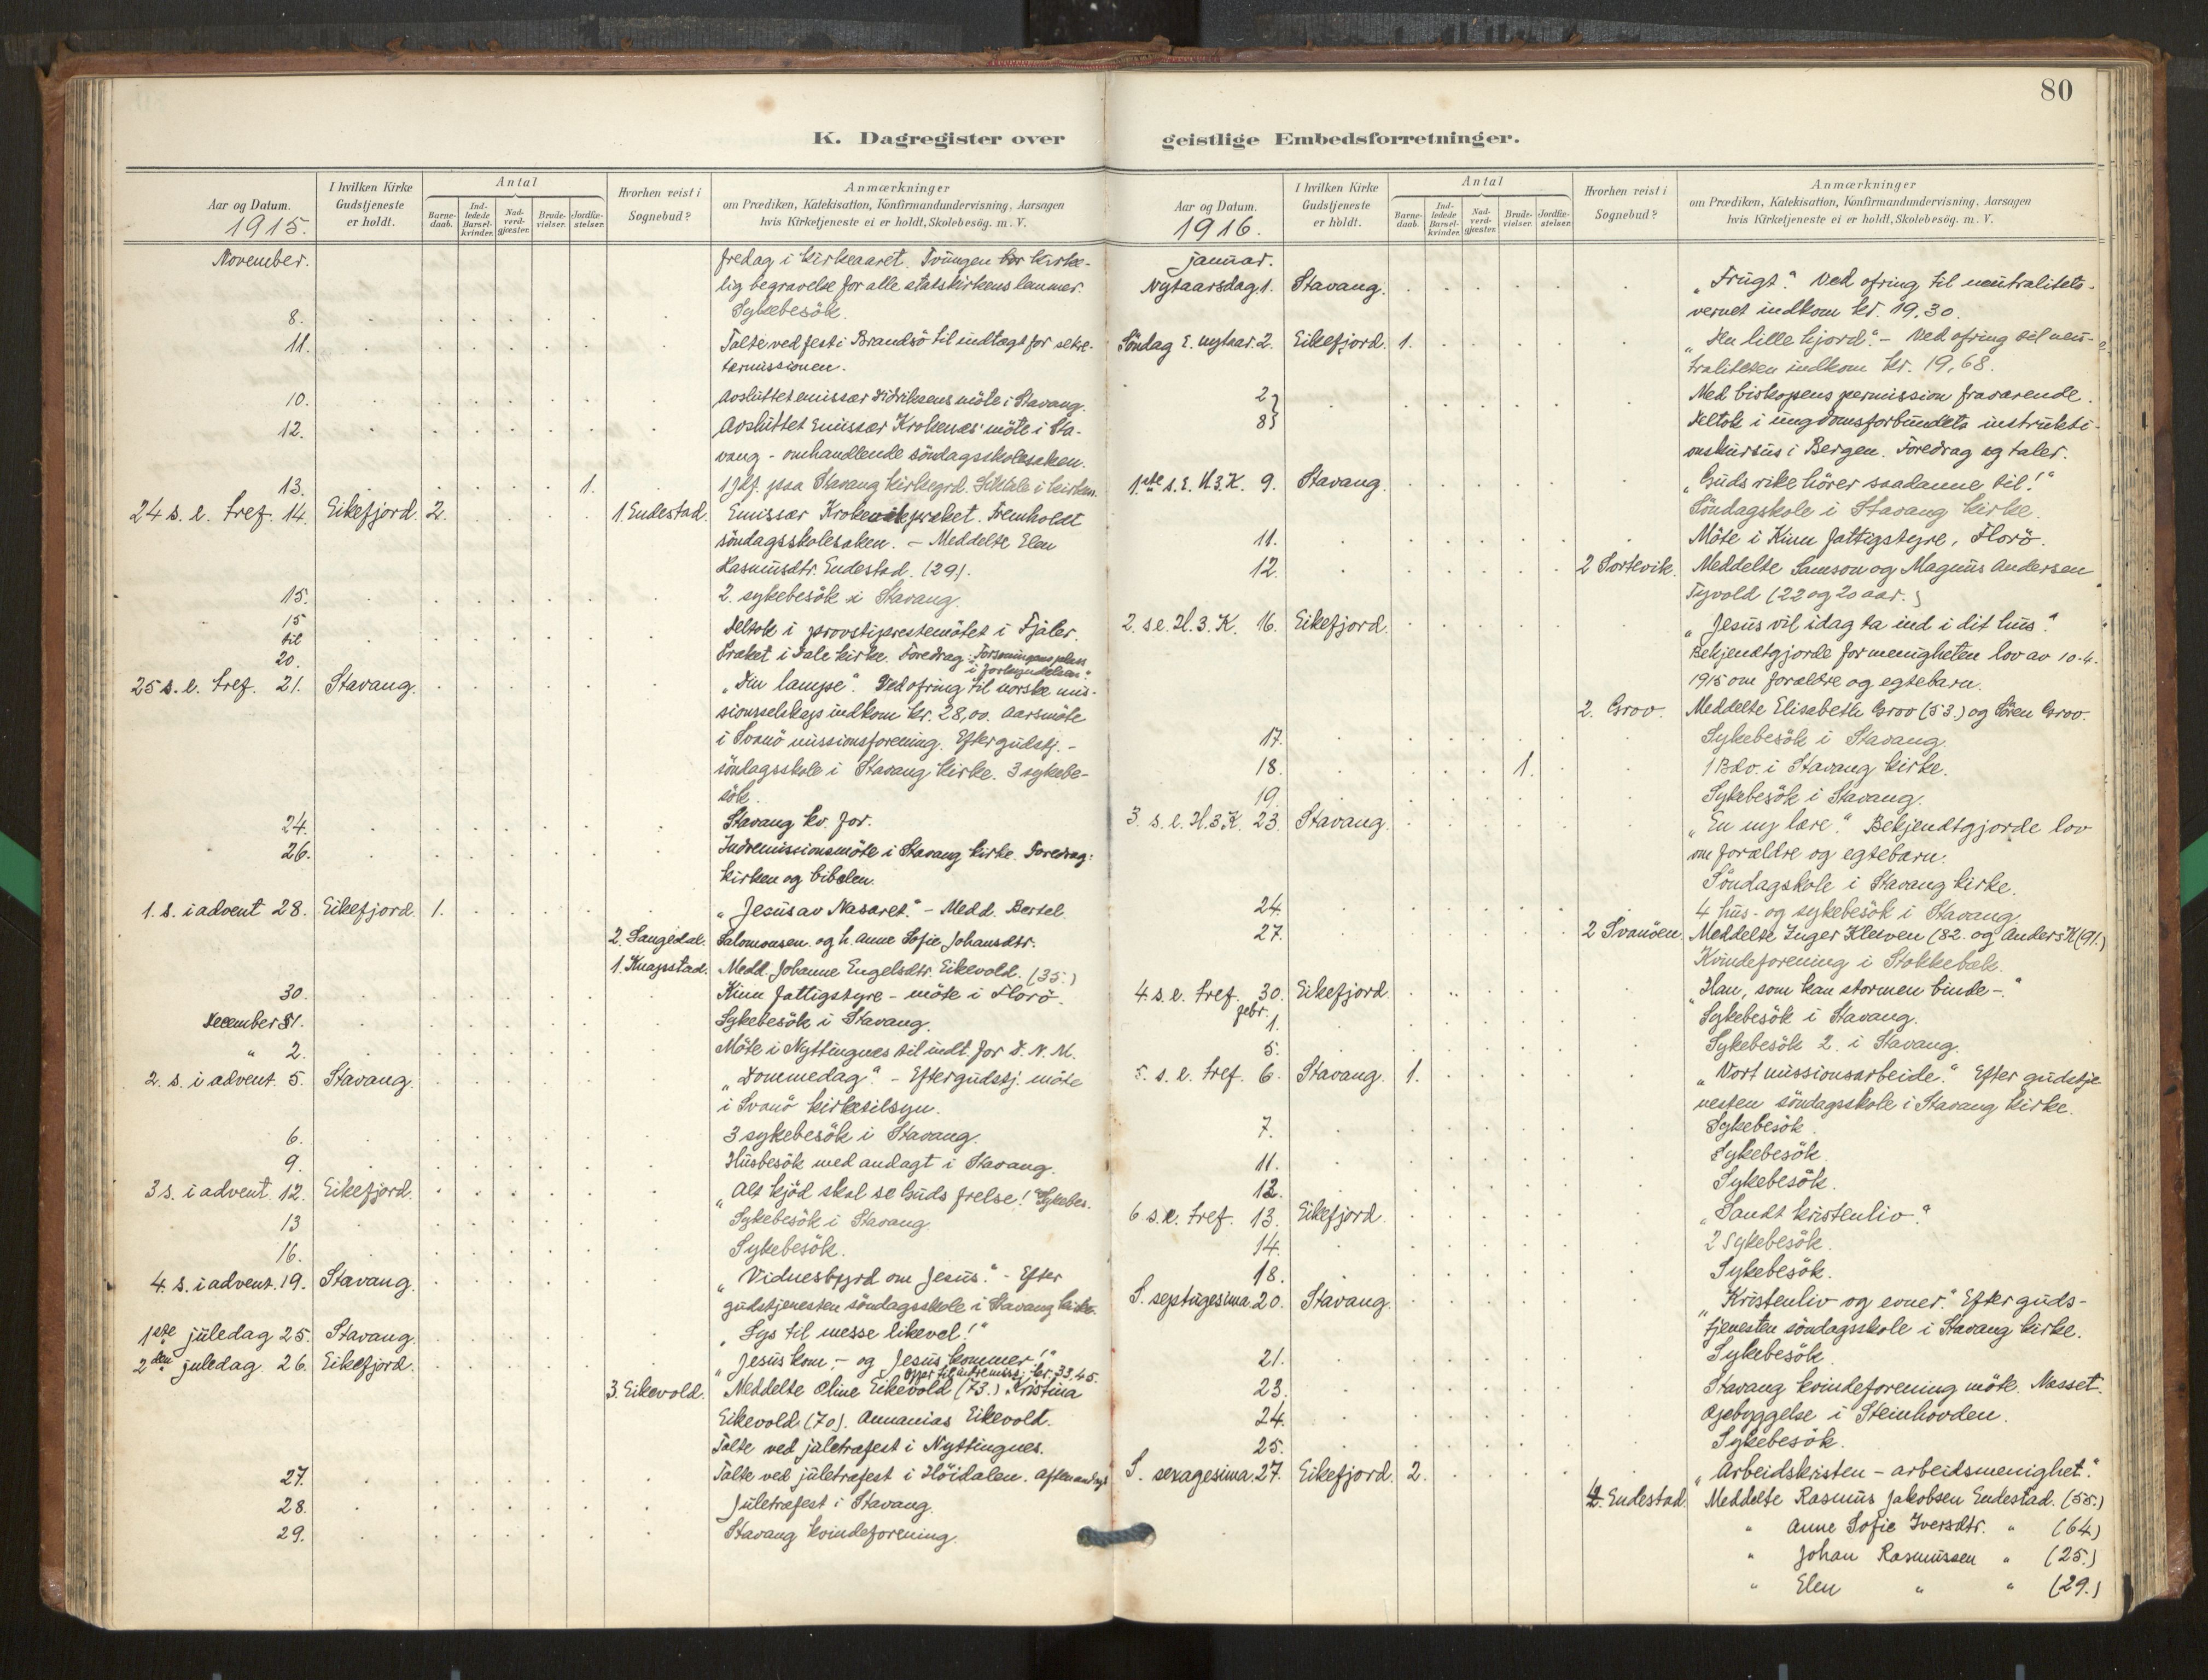 80
K. Dagregister over geistlige Embedsforretninger.
Aar og Datum.
1915.
I hvilken Kirke Gudstjeneste er holdt.
Antal
Barnedaab.
Indledede Barselkvinder.
Nadverdgjæster.
Brudevielser.
Jordfæstelser.
Hvorhen reist i Sognebud?
Anmærkninger
om Prædiken, Katekisation, Konfirmandundervisning, Aarsagen
hvis Kirketjeneste ei er holdt, Skolebesög. m. V.
November. fredag i kirkeaaret. Tvungen kirke-
lig begravelse for alle statskirkens lemmer.
8. Sykebesök.
11. Talte ved fest i Brandsö til indtægt for sekre-
tærmissionen.
10. Avsluttet emissær Didriksens möte i Stavang.
12. Avsluttet Emissær Krokenæs' möte i Sta-
vang - omhandlende söndagsskolesaken.
13. 1. 1 Jkf. paa Stavang kirkegrd. Liktale i kirken.
24 s. e. tref. 14. Eikefjord. 2. 1. Endestad. Emissær præket. Fremholdt
söndagsskolesaken. - Meddelte Elen
Rasmusdtr. Endestad. (29).
15. 2. sykebesök i Stavang.
15 til 20. Deltok i provstiprestemötet i Fjaler.
Præket i Dale kirke. Foredrag: Forsoningens plass
i forkyndelsen."
25 s. e. tref. 21. Stavang. "Din lampe". Ved ofring til norske mis-
sionsselskap indkom kr. 28,00. Aarsmöte
i Svanö missionsforening. Efter gudstj. -
söndagsskole i Stavang kirke. 3 sykebe-
sök.
24. Stavang kv. for.
26. Indremissionsmöte i Stavang kirke. Foredrag:
kirken og bibelen.
1. s. i advent 28. Eikefjord. 1. "Jesus av Nasaret." - Medd. Bertel
2. Langedal. Salomonsen. og h. Anne Sofie Johansdtr.
1. Knapstad. Medd. Johanne Engelsdtr. Eikevold. (35.)
30. Kinn fattigstyre - möte i Florö.
December 1. Sykebesök i Stavang.
" 2. Möte i Nyttingnes til indt. for D. N. M.
2. s. i advent. 5. Stavang. "Dommedag." - Efter gudstj. möte
i Svanö kirketilsyn.
6. 3 sykebesök i Stavang.
9. Husbesök med andagt i Stavang.
3 s. i advent. 12. Eikefjord. "Alt kjöd skal se Guds frelse!" Sykebes.
13 Sykebesök i Stavang.
16. Sykebesök.
4. s. i advent. 19. Stavang. "Vidnesbyrd om Jesus." - Efter
gudstjenesten söndagsskole i Stavang kirke.
1ste juledag 25. Stavang. "Lys til messe likevel!"
2den juledag. 26. Eikefjord. "Jesus kom, - og Jesus kommer!"
Offer til indremiss. kr. 33.45.
3. Eikevold. Meddelte Oline Eikevold (73.) Kristina
Eikevold (70). Annanias Eikevold.
Talte ved juletræfest i Nyttingnes.
27. Talte ved juletræfest i Höidalen. Aftenandagt
28. Juletræfest i Stavang.
29. Stavang kvindeforening.
Aar og Datum.
1916.
I hvilken Kirke Gudstjeneste er holdt.
Antal
Barnedaab.
Indledede Barselkvinder.
Nadverdgjæster.
Brudevielser.
Jordfæstelser.
Hvorhen reist i Sognebud?
Anmærkninger
om Prædiken, Katekisation, Konfirmandundervisning, Aarsagen
hvis Kirketjeneste ei er holdt, Skolebesög. m. V.
januar.
Nytaarsdag. 1. Stavang. "Frugt." Ved ofring til neutralitets-
vernet indkom kr. 19.30.
Söndag e. nytaar. 2. Eikefjord. 1. "Den lille hjord." - Ved ofring til neu-
traliteten indkom kr. 19,68.
2 } Med biskopens permission fraværende.
8 } Deltok i ungdomsforbundets instrukti-
onskursus i Bergen. Foredrag og taler.
1.ste s. e. H3K. 9. Stavang. "Guds rike hörer saadanne til!"
Söndagskole i Stavang kirke.
11. Möte i Kinn fattigstyre, Florö.
12. 2 Sortevik. Meddelte Samson og Magnus Andersen
Tyvold (22 og 20 aar.)
2. s e. H. 3. K. 16. Eikefjord. "Jesus vil idag ta ind i dit hus."
Bekjendtgjorde for menigheten lov av 10-4.
1915 om forældre og egtebarn.
2. Grov. Meddelte Elisabeth Grov (53.) og Sören Grov.
17. Sykebesök i Stavang.
18. 1. 1 Bdv. i Stavang kirke.
19. Sykebesök i Stavang.
3. s. e. H. 3 K. 23. Stavang. "En ny lære." Bekjendtgjorde lov
om forældre og egtebarn.
Söndagskole i Stavang kirke.
24. 4 hus- og sykebesök i Stavang.
27. 2 Svanöen. Meddelte Inger Kleiven (82. og Anders K (91.)
Kvindeforening i Stokkebæk.
4. s. e. tref. 30. Eikefjord. "Han, som kan stormen binde -."
febr. 1. Sykebesök i Stavang.
5. Sykebesök 2. i Stavang.
5. s. e. tref. 6. Stavang. 1. "Vort missionsarbeide." Efter gudstje
nesten söndagsskole i Stavang kirke.
7. Sykebesök.
11. Sykebesök.
12. Sykebesök.
6 s. e. tref. 13. Eikefjord. "Sandt kristenliv."
14. 2 Sykebesök.
18. Sykebesök.
S. septugesima. 20. Stavang. "Kristenliv og evner." Efter guds-
tjenesten söndagsskole i Stavang kirke.
21. Sykebesök.
23. Stavang kvindeforening möte. Masset.
24. Opbyggelse i Steinhovden.
25. Sykebesök.
S. sexagesima. 27. Eikefjord. 2. "Arbeidskristen - arbeidsmenighet."
4. Endestad. Meddelte Rasmus Jakobsen Endestad. (55.)
" Anne Sofie Iversdtr. " (64)
" Johan Rasmussen " (25.)
" Elen " " (29.)